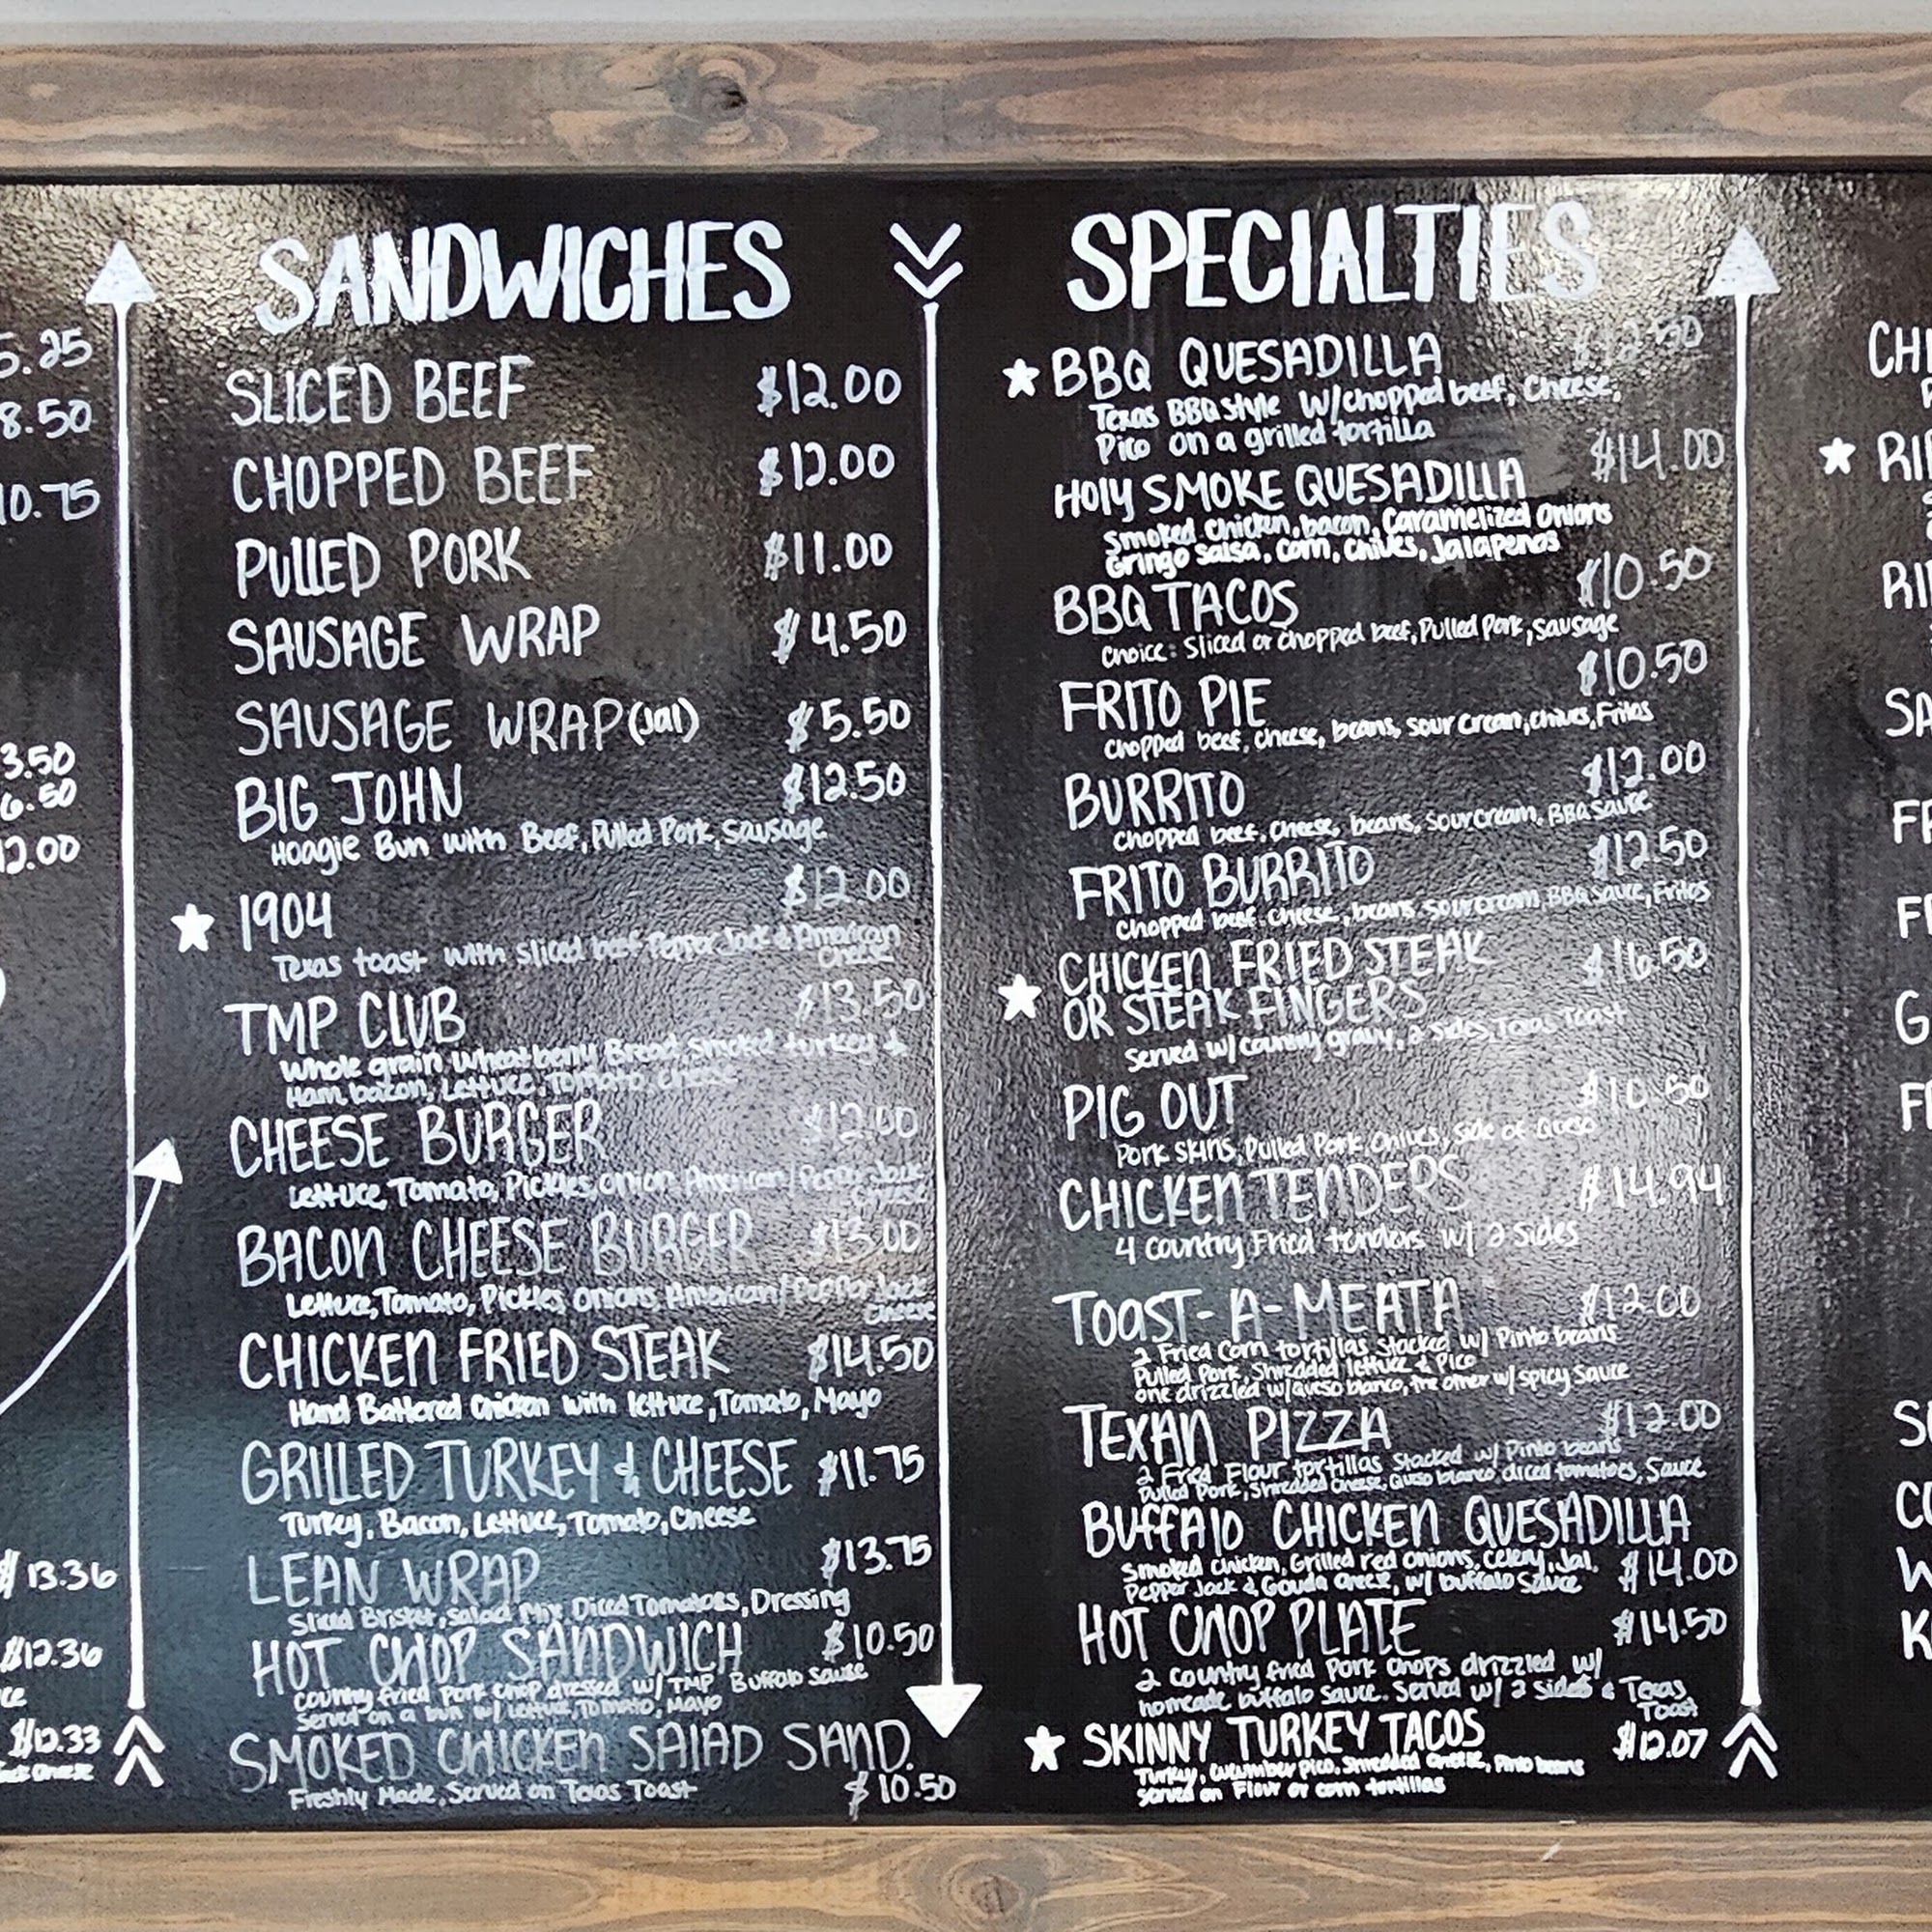 5.25
8.50
10.75
3.50
6.50
12.00
$13.36
$12.36
$12.33
SANDWICHES
SLICED BEEF $12.00
CHOPPED BEEF $12.00
PULLED PORK $11.00
SAUSAGE WRAP $4.50
SAUSAGE WRAP (Jal) $5.50
BIG JOHN $12.50
Hoagie Bun with Beef, Pulled Pork, Sausage
1904 $12.00
Texas toast with sliced beef Pepper Jack & American
cheese
TMP CLUB $13.50
Whole grain wheatberry Bread smoked turkey &
Ham, bacon, Lettuce, Tomato, cheese
CHEESE BURGER
Lettuce, Tomato, Pickles, onion American/Pepper Jack
cheese
BACON CHEESE BURGER $13.00
Lettuce, Tomato, Pickles, onions, American/Pepper Jack
cheese
CHICKEN FRIED STEAK $14.50
Hand Battered chicken with lettuce, Tomato, Mayo
GRILLED TURKEY & CHEESE $11.75
Turkey, Bacon, Lettuce, Tomato, Cheese
LEAN WRAP $13.75
Sliced Brisket, salad Mix, Diced Tomatoes, Dressing
HOT CHOP SANDWICH $10.50
country fried Pork chop dressed w/ TMP Buffalo sauce
Served on a bun w/ lettuce, Tomato, Mayo
SMOKED CHICKEN SALAD SAND.
Freshly Made, Served on Texas Toast $10.50
SPECIALTIES
BBQ QUESADILLA
Texas BBQ style w/chopped beef, cheese,
Pico on a grilled tortilla
HOLY SMOKE QUESADILLA $14.00
Smoked Chicken, bacon, Caramelized onions
Gringo salsa, corn, chives, Jalapenos
BBQ TACOS $10.50
Choice: Sliced or chopped beef, Pulled Pork, sausage
FRITO PIE $10.50
chopped beef, cheese, beans, sour cream, chives, Fritos
BURRITO $12.00
chopped beef, cheese, beans, sour cream, BBQ sauce
FRITO BURRITO $12.50
chopped beef, cheese, beans, sour cream, BBQ sauce, Fritos
CHICKEN FRIED STEAK $16.50
OR STEAK FINGERS
Served w/ country gravy, 2 sides, Texas Toast
PIG OUT
Pork skins, Pulled Pork, chives, side of Queso
CHICKEN TENDERS $14.94
4 country Fried tenders w/ 2 sides
TOAST-A-MEATA $12.00
2 Fried Corn tortillas Stacked w/ Pinto beans
Pulled Pork, Shredded lettuce & Pico
one drizzled w/queso blanco, the other w/ spicy sauce
TEXAN PIZZA $12.00
2 Fried Flour tortillas Stacked w/ Pinto beans
Pulled Pork, Shredded cheese, Queso blanco diced tomatoes, Sauce
BUFFALO CHICKEN QUESADILLA
Smoked chicken, Grilled red onions, celery, Jal,
Pepper Jack & Gouda cheese, w/ buffalo sauce $14.00
HOT CHOP PLATE $14.50
2 country fried Pork chops drizzled w/
homeade buffalo sauce. Served w/ 2 sides & Texas
Toast
SKINNY TURKEY TACOS $12.07
Turkey, cucumber pico, Shredded cheese, Pinto beans
served on Flour or corn tortillas